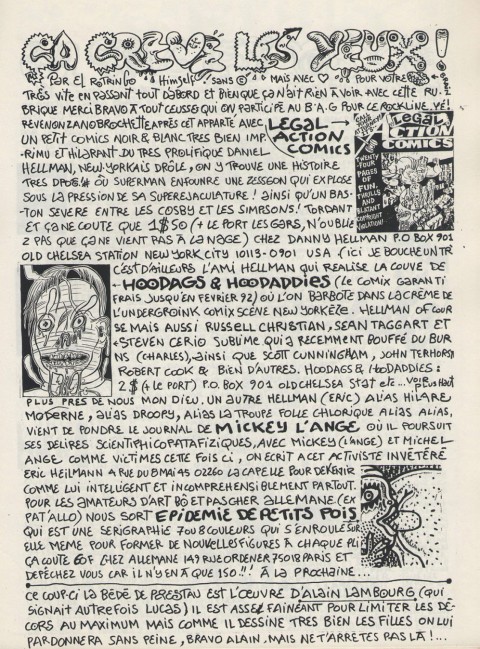 ÇA CREVE LES YEUX!
PAR EL ROTRINGO HIMSELF SANS © MAIS AVEC ♡ POUR VOTRE
TRÈS VITE EN PASSANT TOUT D'ABORD ET BIEN QUE ÇA N'AIT RIEN À VOIR AVEC CETTE RU-
BRIQUE MERCI BRAVO À TOUT CEUSSE QUI ON PARTICIPÉ AU B.A.G POUR CE ROCKLINE. YÉ!
REVENONZANO BROCHETTE APRÈS CET APPARTE AVEC
UN PETIT COMICS NOIR & BLANC TRES BIEN IMP-
-RIMU ET HILARANT DU TRES PROLIFIQUE DANIEL
LEGAL ACTION COMICS
HELLMAN, NEW-YORKAIS DRÔLE, ON Y TROUVE UNE HISTOIRE
TRES OÙ SUPERMAN ENFOURNE UNE ZESSGON QUI EXPLOSE
SOUS LA PRESSION DE SA SUPEREJACULATURE! AINSI QU'UN BAS-
-TON SEVERE ENTRE LES COSBY ET LES SIMPSONS! TORDANT
ET ÇA NE COUTE QUE 1$50 (+ LE PORT LES GARS, N'OUBLIE
Z PAS QUE ÇA NE VIENT PAS À LA NAGE) CHEZ DANNY HELLMAN P.O BOX 901
OLD CHELSEA STATION NEW YORK CITY 10113-0901 USA (ICI JE BOUCHE UN TR
LEGAL ACTION COMICS
TWENTY FOUR PAGES OF FUN, THRILLS AND BLATANT COPYRIGHT VIOLATION!
C'EST D'AILLEURS L'AMI HELLMAN QUI REALISE LA COUVE DE
HOODAGS & HOODADDIES (LE COMIX GARANTI
FRAIS JUSQU'EN FEVRIER 92) OÙ L'ON BARBOTE DANS LA CRÈME DE
L'UNDERGROINK COMIX SCÈNE NEW YORKÈZE. HELLMAN OF COUR
SE MAIS AUSSI RUSSELL CHRISTIAN, SEAN TAGGART ET
STEVEN CERIO SUBLIME QUI A RECEMMENT BOUFFÉ DU BUR
NS (CHARLES), AINSI QUE SCOTT CUNNINGHAM, JOHN TERHORST
ROBERT COOK & BIEN D'AUTRES. HOODAGS & HOODADDIES:
2$ (+ LE PORT) P.O. BOX 901 OLD CHELSEA STAT ETC... VOIR PLUS HAUT
PLUS PRES DE NOUS MON DIEU. UN AUTRE HELLMAN (ERIC) ALIAS HILARE
MODERNE, ALIAS DROOPY, ALIAS LA TROUPE FOLLE CHLORIQUE ALIAS ALIAS,
VIENT DE PONDRE LE JOURNAL DE MICKEY L'ANGE OÙ IL POURSUIT
SES DELIRES SCIENTIPHICOPATAFIZIQUES, AVEC MICKEY (L'ANGE) ET MICHEL
ANGE COMME VICTIMES CETTE FOIS CI, ON ECRIT A CET ACTIVISTE INVÉTÉRÉ
ERIC HEILMANN 4 RUE DU 8 MAI 45 02260 LA CAPELLE POUR DEVENIR
COMME LUI INTELIGENT ET INCOMPREHENSIBLEMENT PARTOUT.
POUR LES AMATEURS D'ART BÔ ET PAS CHER ALLEMANE (EX
PAT'ALLO) NOUS SORT EPIDEMIE DE PETITS POIS
QUI EST UNE SERIGRAPHIE 7 OU 8 COULEURS QUI S'ENROULE SUR
ELLE MEME POUR FORMER DE NOUVELLES FIGURES À CHAQUE PLI
ÇA COÛTE 60F CHEZ ALLEMANE 149 RUE ORDENER 75018 PARIS ET
DEPÊCHEZ VOUS CAR IL N'Y EN À QUE 150!! À LA PROCHAINE...
CE COUP-CI LA BÉBÉ DE PERESTAU EST L'ŒUVRE D'ALAIN LAMBOURG (QUI
SIGNAIT AUTREFOIS LUCAS) IL EST ASSEZ FAINÉANT POUR LIMITER LES DÉ-
CORS AU MAXIMUM MAIS COMME IL DESSINE TRES BIEN LES FILLES ON LUI
PARDONNERA SANS PEINE, BRAVO ALAIN, MAIS NE T'ARRÊTES PAS LÀ!...